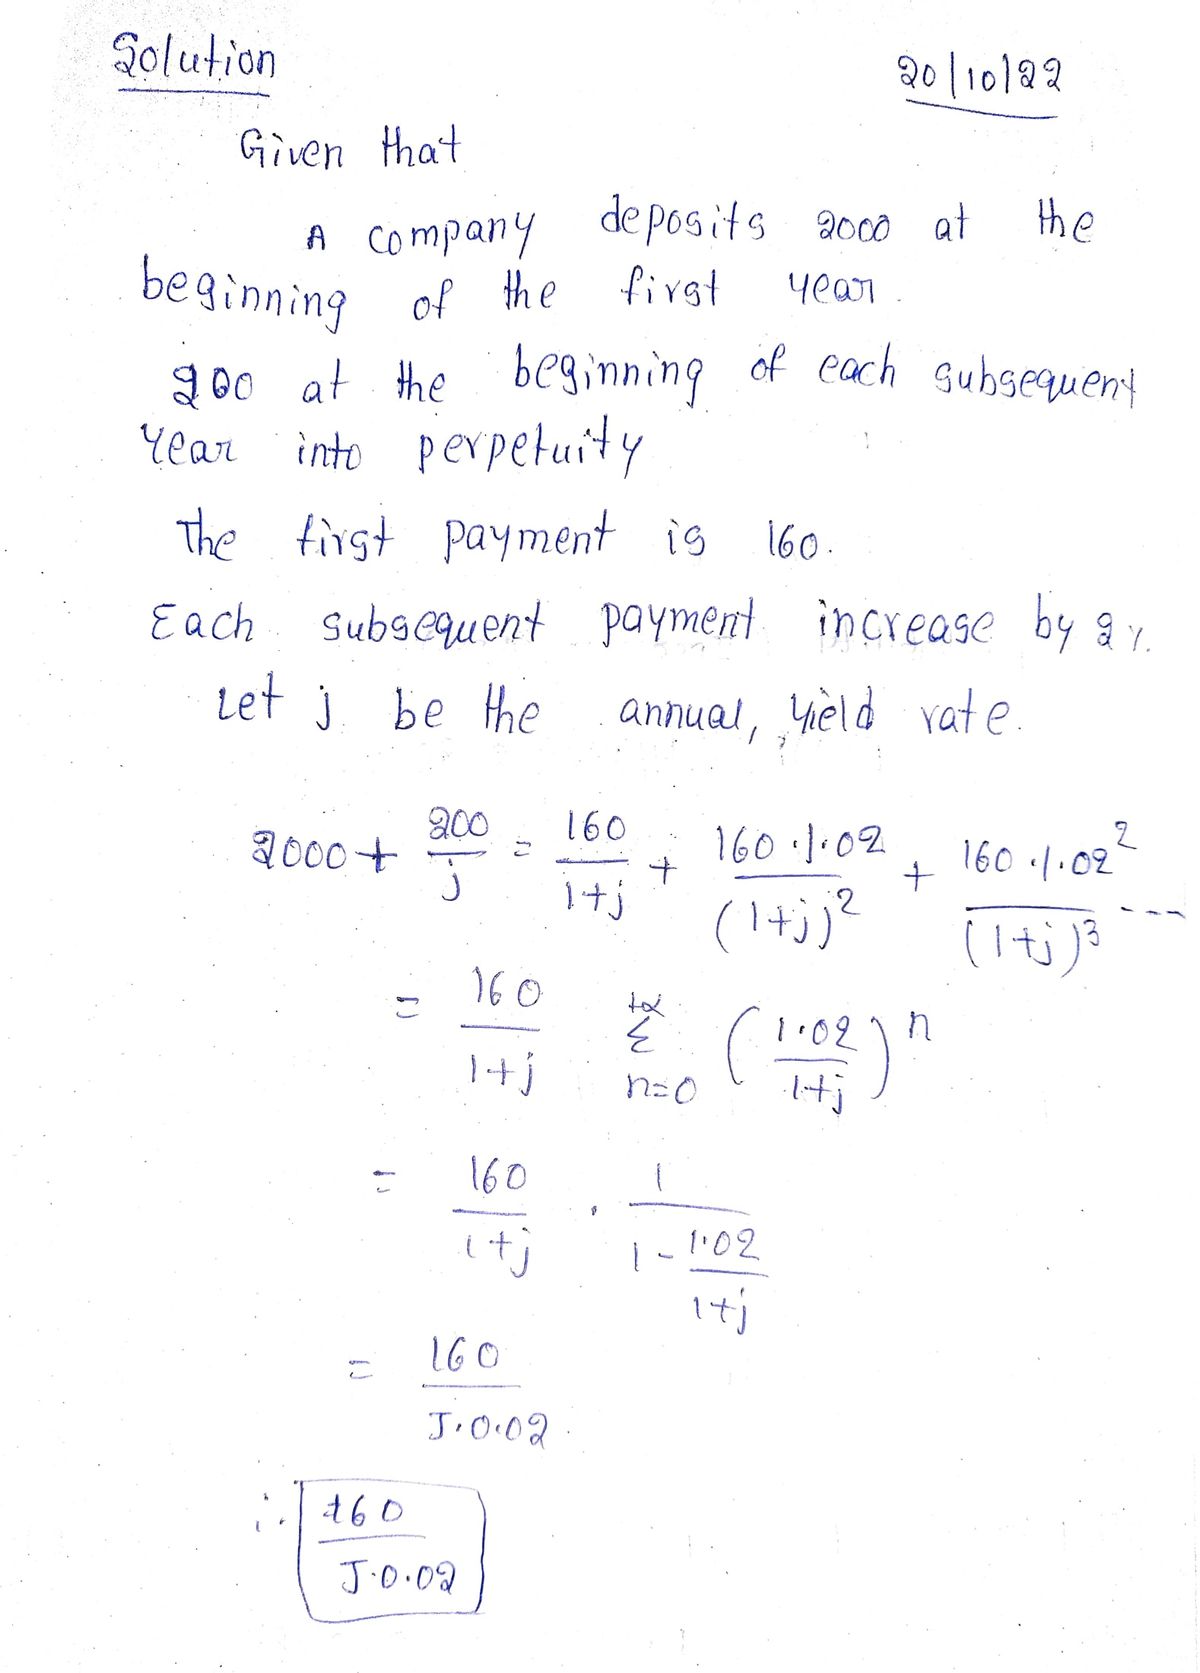 Solution
20/10/22
Given that
A company deposits 2000 at the
beginning of the first year.
200 at the beginning of each subsequent
year into perpetuity
The first payment is 160.
Each subsequent payment increase by 2%.
Let j be the annual, yield rate.
2000 + 200/j = 160/(1+j) + 160·1·02/(1+j)² + 160·1·02²/(1+j)³ ---
= 160/(1+j) +α Σ n=0 (1·02/(1+j))^n
= 160/(1+j) · 1/(1 - 1·02/(1+j))
= 160/J·0·02.
∴ 160/J·0·02